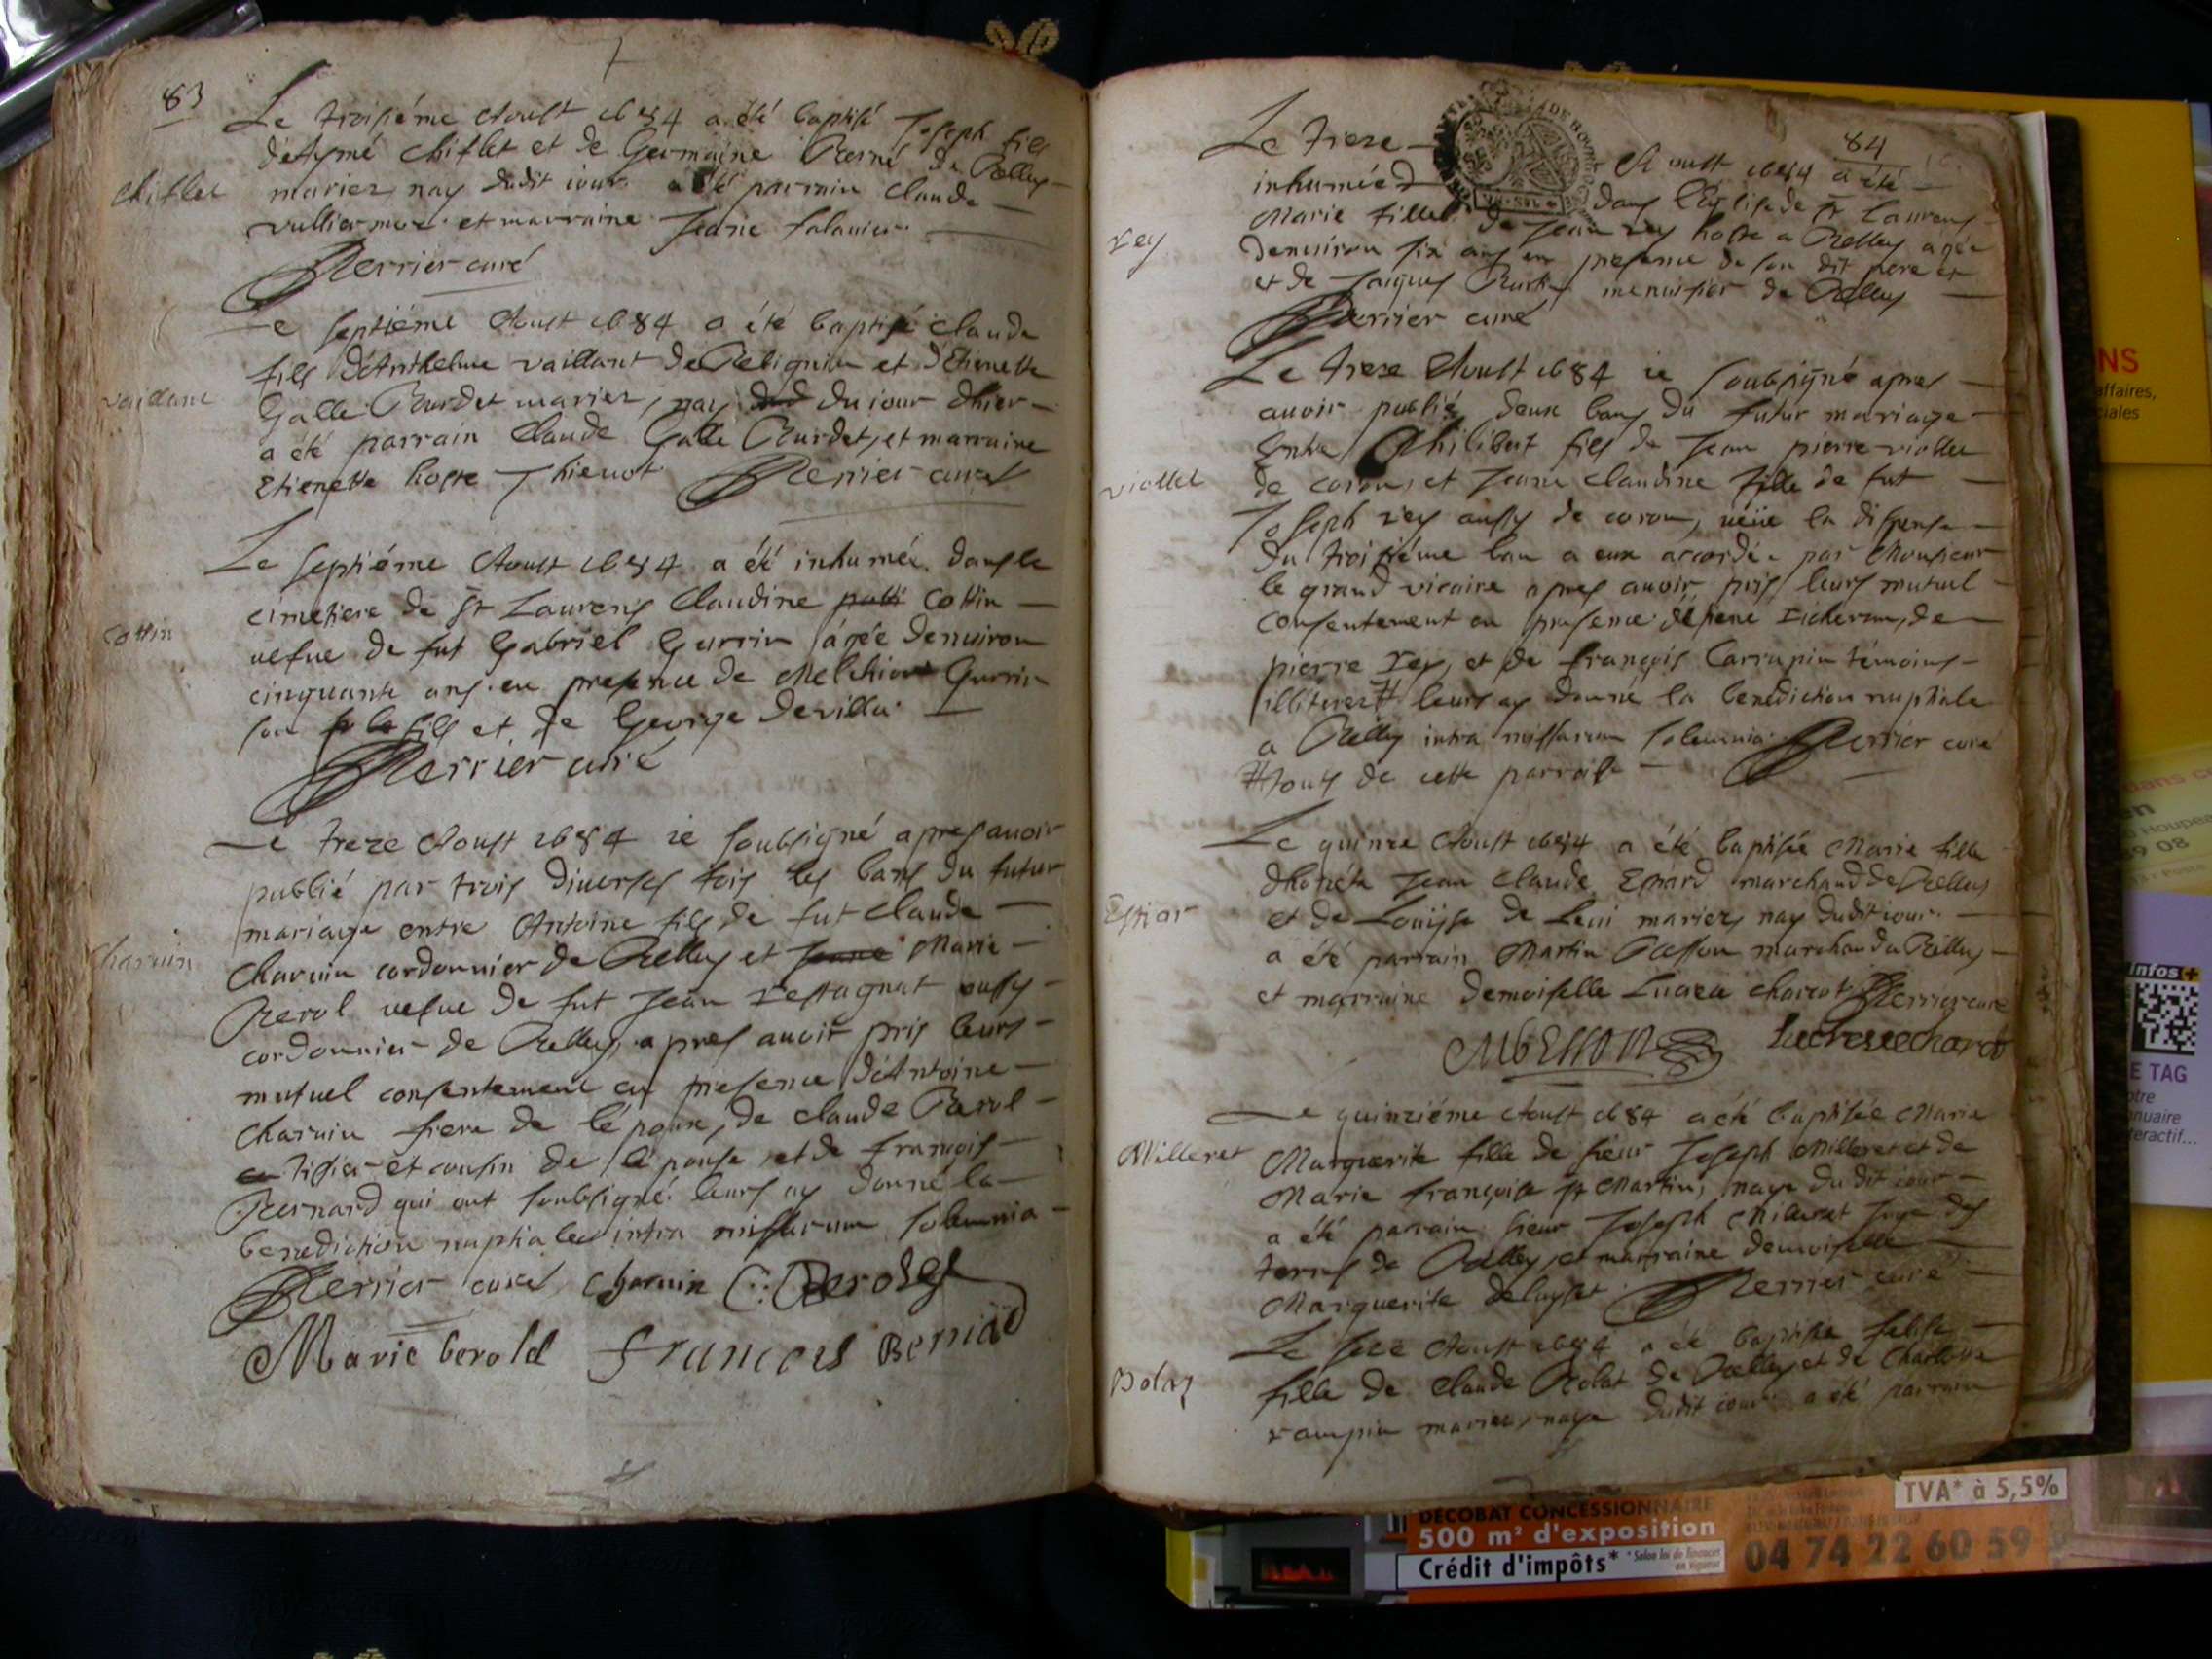 83
Le troisiéme Aoust 1684 a été baptisé Joseph fils
d'Aymé Chiflet et de Germaine Berne de Belley
Chiflet
mariez nay dudit iour a été parrain Claude
vulliermoz et marraine Jeane
Berrier curé
Le septiéme Aoust 1684 a été baptisé Claude
fils d'Anthelme vaillant de Betignin et d'Etienette
vaillant
Galle Burdet mariez, nay du iour dhier
a été parrain Claude Galle Burdet, et marraine
Etienette hoste Thienot Berrier curé
Le septiéme Aoust 1684 a été inhumée dans le
cimetiere de St Laurens Claudine Cottin
Cottin
vefue de fut Gabriel Gurrin agée denuiron
cinquante ans en presence de Melchior Gurrin
son fils et de George devilla
Berrier curé
Le treze Aoust 1684 ie soubsigné apres auoir
publié par trois diuerses fois les bans du futur
mariage entre Antoine fils de fut Claude
Charuin
Charuin cordonnier de Belley et Marie
Berol vefue de fut Jean restagnat aussy
cordonnier de Belley apres auoir pris leurs
mutuel consentement en presence d'Antoine
Charuin frere de lépoux, de Claude Berol
et cousin de lépouse et de françois
Bernard qui ont soubsigné leurs ay donné la
benediction nuptiale intra missarum solemnia
Berrier curé charuin C: Berol
Marie berold francois Bernard
84
Le treze Aoust 1684 a été
inhumée dans l'Eglise de St Laurens
Marie fille de Jean rey hoste a Belley agée
rey
denuiron six ans en presence de son dit pere et
et de Jaques menuisier de Belley
Berrier curé
Le treze Aoust 1684 ie soubsigné apres
auoir publié deux bans du futur mariage
Entre Philibert fils de Jean pierre viollet
viollet
de coron, et Jeane Claudine fille de fut
Joseph rey aussy de coron, veüe la dispense
du troisiéme ban a eux accordée par Monsieur
le grand vicaire apres auoir pris leurs mutuel
consentement en presence de pierre de
pierre rey, et de françois Carrapin témoins
illiterez # leurs ay donné la benediction nuptiale
a Belley intra missarum solemnia Berrier curé
# touts de cette parroisse
Le quinze Aoust 1684 a été baptisée Marie fille
dhonéte Jean Claude marchand de Belley
et de Louïse de mariez nay dudit iour
a été parrain Martin Besson marchand a Belley
et marraine demoiselle Lucrece charcot Berrier curé
MBESSON
Le quinziéme Aoust 1684 a été baptisée Marie
Milleret
Marguerite fille de sieur Joseph Milleret et de
Marie françoise St Martin, naye du dit iour
a été parrain sieur Joseph Milleret Juge des
terres de Belley, et marraine demoiselle
Marguerite Berrier curé
Le seze Aoust 1684 a été baptisée
Bolaz
fille de Claude Bolat de Belley et de Charlotte
rampin mariez, naye dudit iour a été parrain
NS
affaires,
Infos+
LE TAG
DÉCOBAT CONCESSIONNAIRE
500 m² d'exposition
Crédit d'impôts*
TVA* à 5,5%
04 74 22 60 59